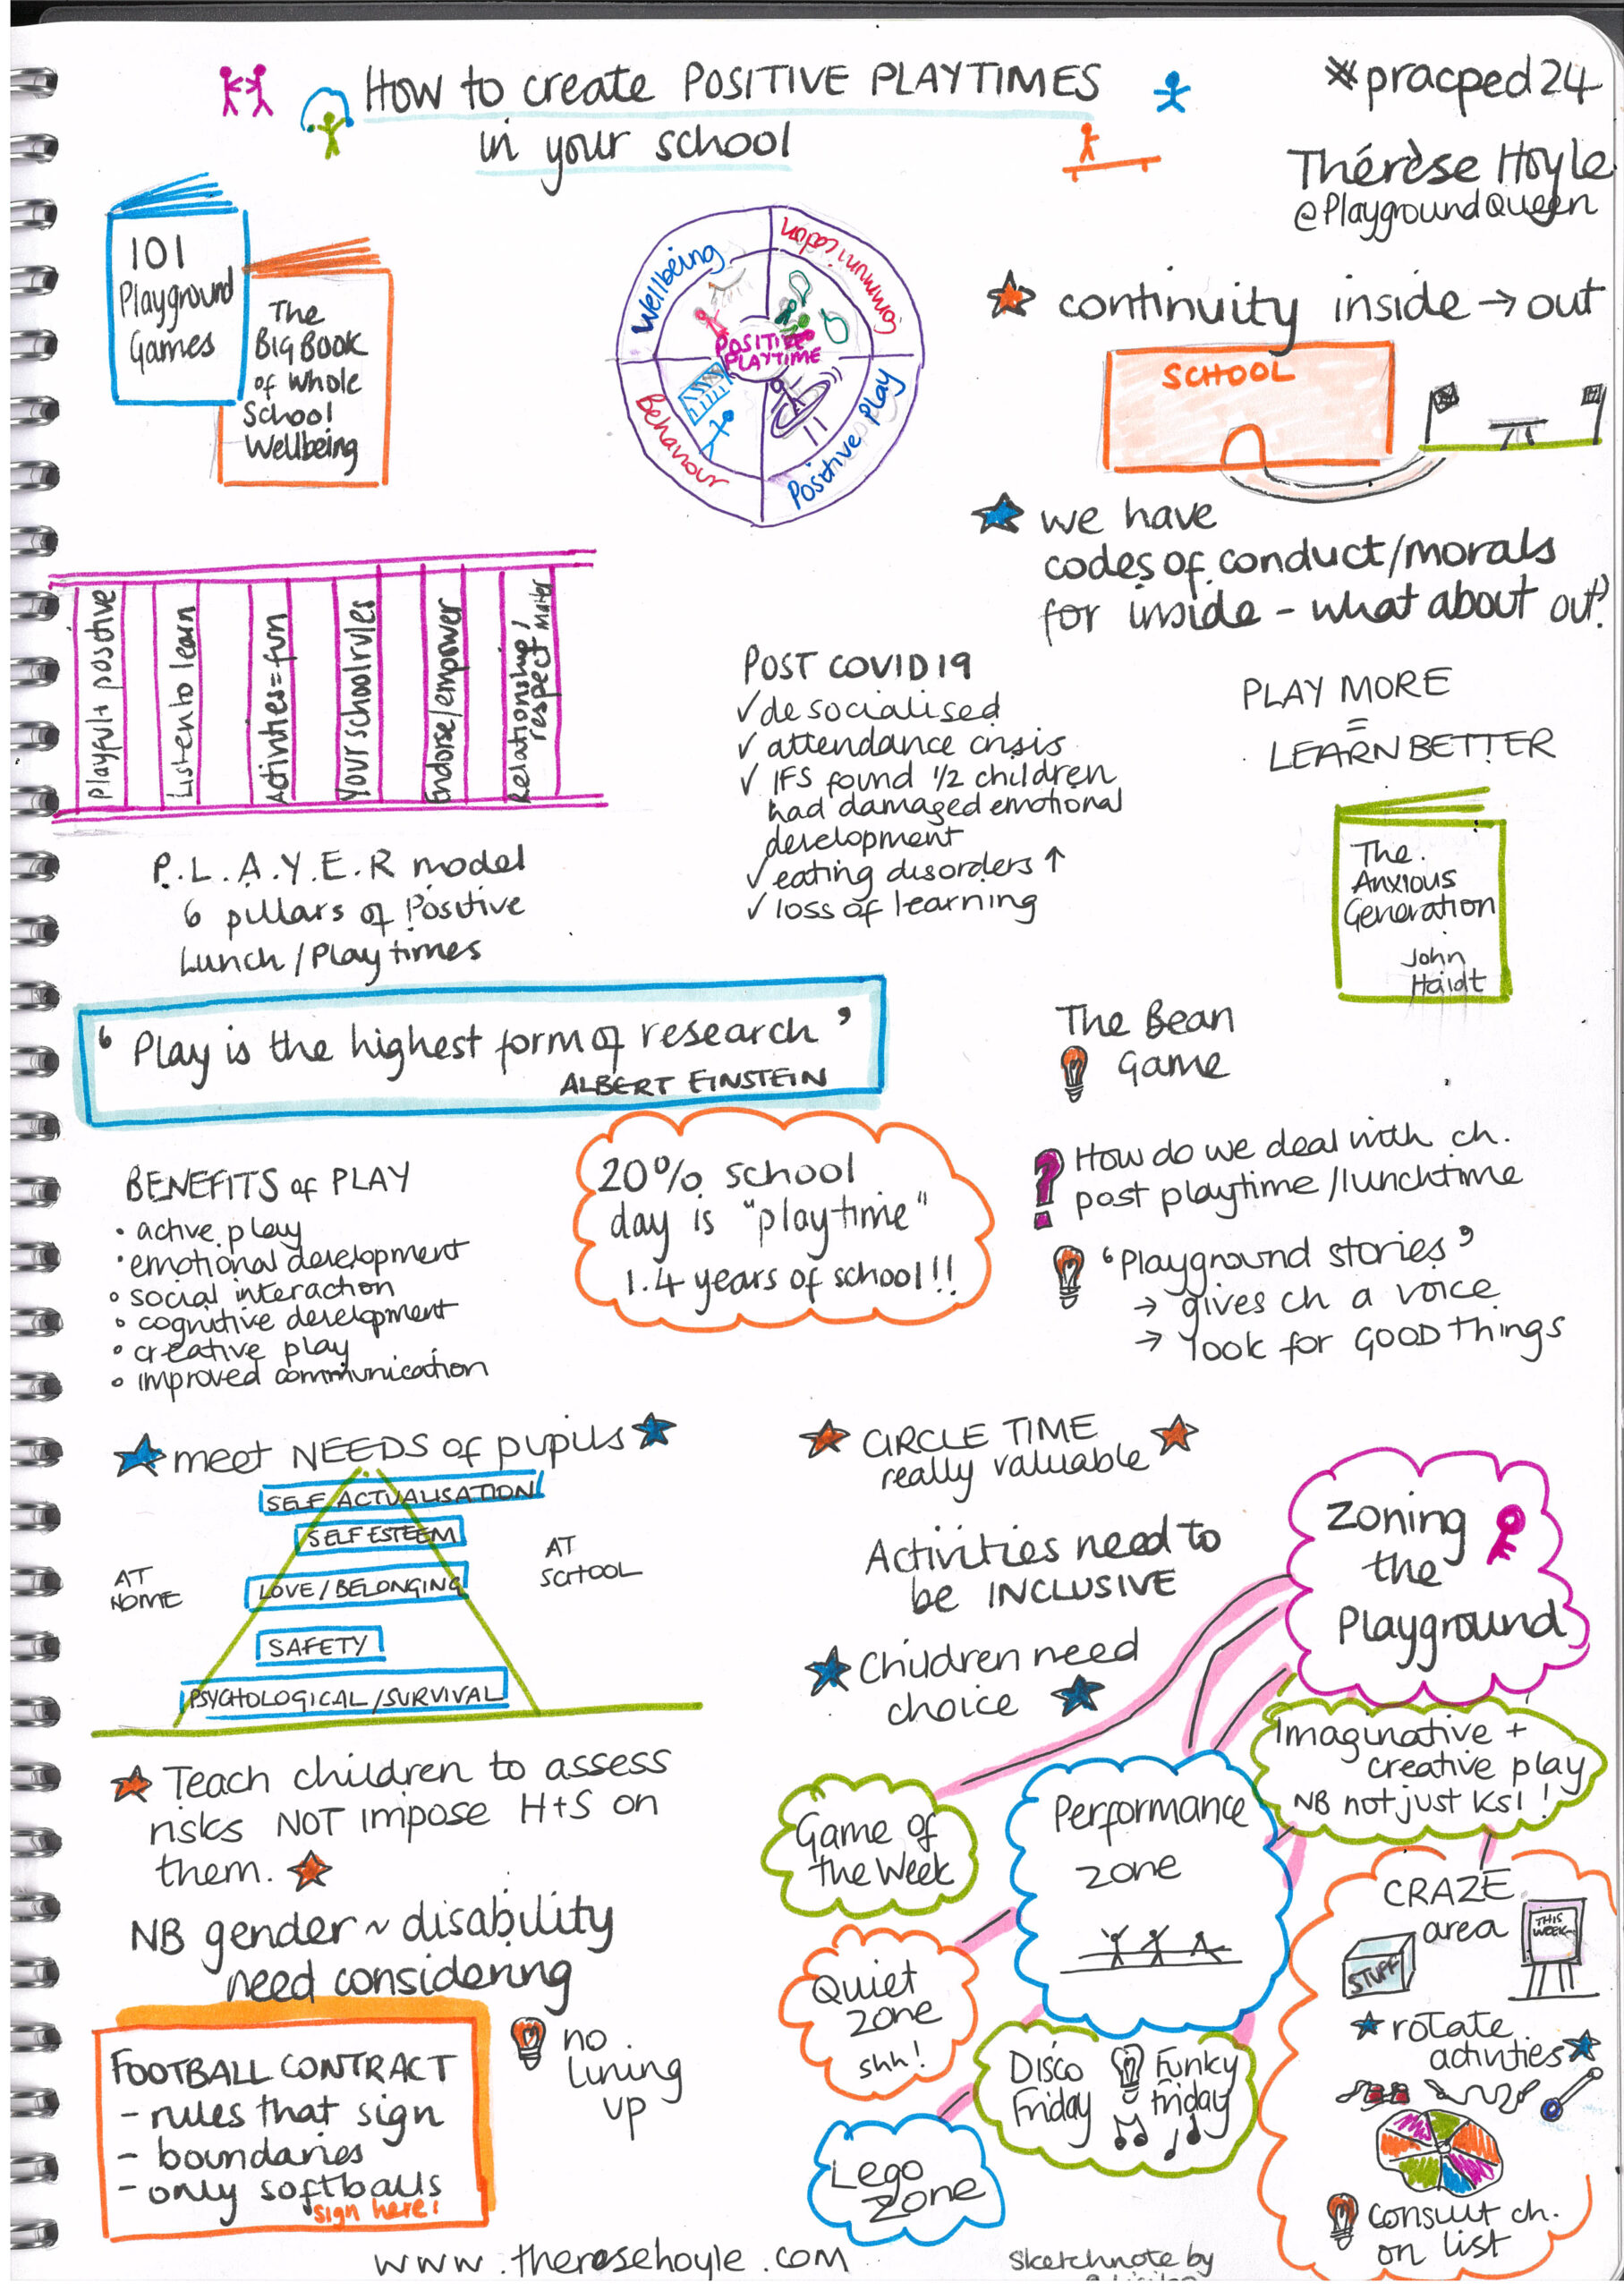 How to create POSITIVE PLAYTIMES
in your school
#pracped24
Thérèse Hoyle
@PlaygroundQueen
101
Playground
Games
The
Big Book
of Whole
School
Wellbeing
Wellbeing
Communication
Behaviour
Positive Play
POSITIVE
PLAYTIME
continuity inside → out
SCHOOL
we have
codes of conduct/morals
for inside - what about out?
Playful + positive
Listen to learn
Activities = fun
Your school rules
Endorse/empower
Relationship/
respect matter
P.L.A.Y.E.R model
6 pillars of Positive
Lunch/Playtimes
POST COVID 19
✓ desocialised
✓ attendance crisis
✓ IFS found 1/2 children
had damaged emotional
development
✓ eating disorders ↑
✓ loss of learning
PLAY MORE
=
LEARN BETTER
The
Anxious
Generation
John
Haidt
' Play is the highest form of research '
ALBERT EINSTEIN
The Bean
Game
BENEFITS of PLAY
• active play
• emotional development
• social interaction
• cognitive development
• creative play
• improved communication
20% school
day is "playtime"
1.4 years of school!!
? How do we deal with ch.
post playtime/lunchtime
'Playground stories'
→ gives ch a voice
→ look for GOOD things
meet NEEDS of pupils
SELF ACTUALISATION
SELF ESTEEM
LOVE/BELONGING
SAFETY
PSYCHOLOGICAL/SURVIVAL
AT
HOME
AT
SCHOOL
CIRCLE TIME
really valuable
Activities need to
be INCLUSIVE
Children need
choice
Zoning
the
Playground
Teach children to assess
risks NOT impose H+S on
them.
NB gender ~ disability
need considering
FOOTBALL CONTRACT
- rules that sign
- boundaries
- only softballs
sign here!
no
lining
up
Game of
the Week
Performance
zone
Imaginative +
creative play
NB not just KS1!
Quiet
zone
shh!
Disco
Friday
Funky
Friday
Lego
Zone
CRAZE
area
STUFF
THIS
WEEK
rotate
activities
consult ch.
on list
www.theresehoyle.com
Sketchnote by